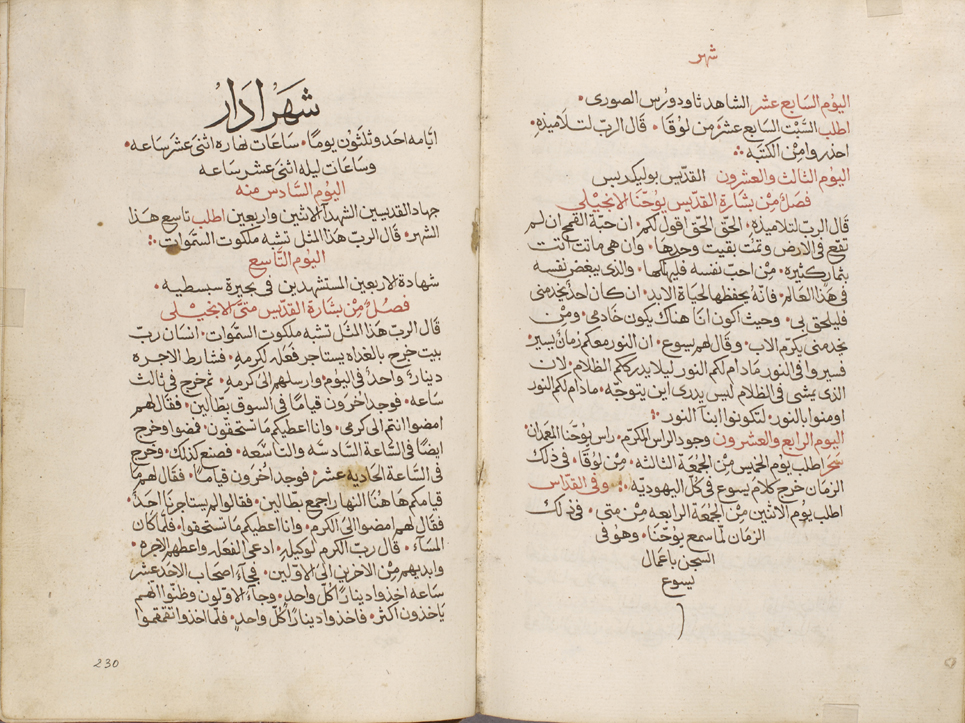 شهر
اليوم السابع عشر الشاهد ثاودورس الصورى ٠
اطلب السَّبْت السابع عشر مِن لوُقا ٠ قال الربّ لتلاميذهِ ٠
احذروا مِنَ الكتبَه ܀
اليوم الثالث والعشرون القدّيس بوليكربس
فصَلٌ مِنْ بشارة القدّيس يوُحنّا الانجيْلى
قال الربّ لتلاميذهِ ٠ الحقّ الحقّ اقول لكم ٠ ان حبّة القمح ان لم
تقع فى الارض وتمُت بقيت وحدِها ٠ وان هى ماتت اتت
بثمار كثيره ٠ مِن احبّ نفسه فليهلكها ٠ والذى يبغض نفسه
فى هذا العالم ٠ فانّه يحفظها لحياة الابد ٠ ان كان احدٌ يخدمنى
فليلحق بى ٠ وحيث اكون انا هناك يكون خادمى ٠ ومَن
يخدمنى يكرّم الاب ٠ وقال لهم يسوع ٠ ان النور معكم زمان يسير ٠
فسيروا فى النور مادام لكم النور ليلا يدرككم الظلام ٠ لان
الذى يمشى فى الظلام ليس يدرى اين يتوجّه ٠ مادام لكم النور
اومنوا بالنور ٠ لتكونوا ابنآ النور ܀
اليوم الرابع والعشرون وجود الراس المكرّم ٠ راس يوُحنّا المعمدان ٠
سَحَر اطلب يوم الخميس مِنَ الجمُعَة الثالثه ٠ مِن لوُقا ٠ فى ذلك
الزمان خرج كلام يسوع فى كلّ اليهوديّه ܀ وفى القدّاس
اطلب يوُم الاثنين مِنَ الجمُعَة الرابعه مِن متى ٠ فى ذلك
الزمان لمّا سمع يوُحنّا ٠ وهو فى
السّجن باعمال
يسوع
شَهْر ادَارْ
ايّامه احَد وثلثوُن يومًا ٠ سَاعَات نهاره اثنى عشر سَاعه ٠
وسَاعَات ليله اثنى عشر سَاعه
اليوُم السَّادس منه
جهاد القديسين الشهدآ الاثنين واربعين اطلب تاسع هَذا
الشهر ٠ قال الربّ هذا المثل تشبه ملكوت السَّموات ܀
اليوم التَّاسع
شهادة الاربعين المستشهدين فى بحيرة سبسطيه ٠
فصلٌ مِنْ بشارة القدّيس متىَّ الانجيْلى
قال الربّ هَذا المثَل تشبه ملكوت السَّموات ٠ انسَان ربّ
بيت خرج بالغداه يستاجر فعَله لكرمهِ ٠ فشارط الاجره
دينارًا واحدًا فى اليوم وارسلهم الى كرمهِ ٠ ثم خرج فى ثالث
سَاعه ٠ فوجد اخرون قيامًا فى السوق بطّالين ٠ فقال لهم
امضوا انتم الى كرمى ٠ وانا اعطيكم مَا تستحقون ٠ فمضوا وخرج
ايضًا فى السَّاعة السَّادسَه والتاسّعه ٠ فصنع كذلك ٠ وخرج
فى السَّاعة الحادية عشر ٠ فوجد اخرون قيامًا ٠ فقال لهم مَا
قيامكم هَا هُنا النهار اجمع بطّالين ٠ فقالوا لم يستاجرنا احَدٌ ٠
فقال لهم امضوا الى الكرم ٠ وانا اعطيكم مَا تستحقوا ٠ فلمّا كان
المسَآء ٠ قال ربّ الكرم لوكيلهِ ٠ ادعى الفعَله واعطهم الاجره ٠
وابديهم مِنَ الاخرين الى الاوّلين ٠ فجآء اصحاب الاحَد عشر
سَاعه اخذوا دينارًا كلّ واحدٍ ٠ وجآء الاوّلون وظنّوا انّهم
ياخذون اكثر ٠ فاخذوا دينارًا كلّ واحدٍ ٠ فلمّا اخذوا تقمقموا
230